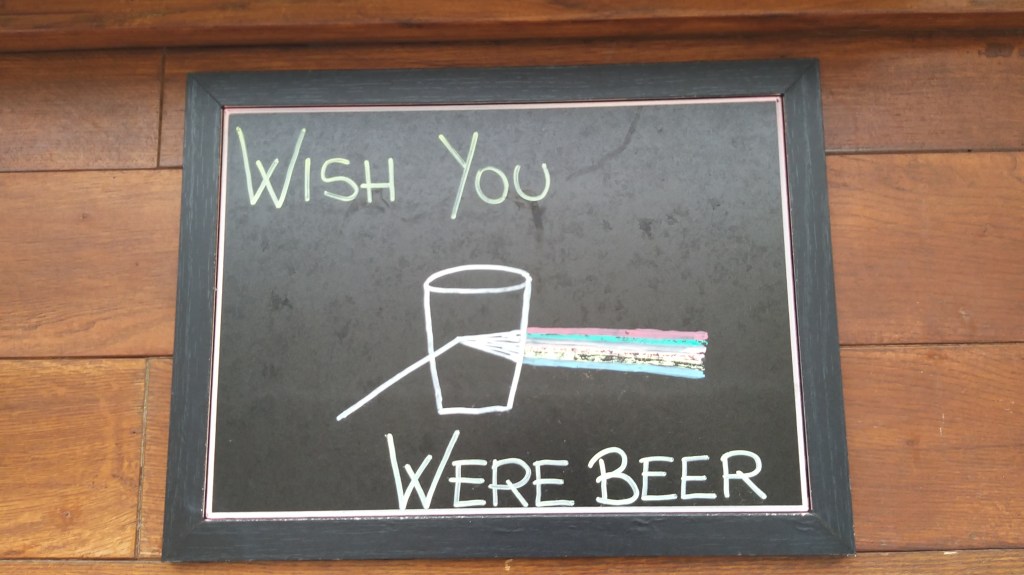 Wish You
Were Beer